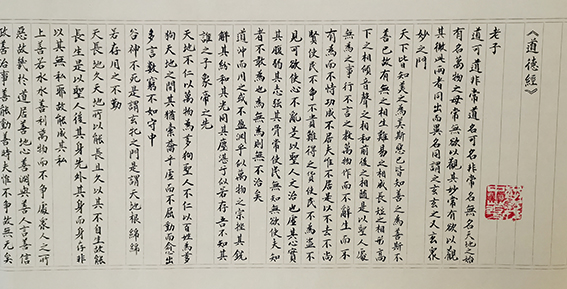 《道德經》
老子
道可道非常道名可名非常名無名天地之始
有名萬物之母常無欲以觀其妙常有欲以觀
其徼此兩者同出而異名同謂之玄玄之又玄衆
妙之門
天下皆知美之為美斯惡已皆知善之為善斯不
善已故有無之相生難易之相成長短之相形高
下之相傾音聲之相和前後之相隨是以聖人處
無為之事行不言之教萬物作而不辭生而不
有為而不恃功成不居夫惟不居是以不去不尚
賢使民不爭不貴難得之貨使民不為盜不
見可欲使心不亂是以聖人之治也虛其心實
其腹弱其志強其骨常使民無知無欲使夫知
者不敢為也為無為則無不治矣
道沖而用之或不盈淵乎似萬物之宗挫其銳
解其紛和其光同其塵湛兮似若存吾不知其
誰之子象帝之先
天地不仁以萬物為芻狗聖人不仁以百姓為芻
狗天地之間其猶橐籥乎虛而不屈動而愈出
多言數窮不如守中
谷神不死是謂玄牝之門是謂天地根綿綿
若存用之不勤
天長地久天地所以能長且久以其不自生故能
長生是以聖人後其身而先外其身身存非
以其無私耶故能成其私
上善若水水善利萬物而不爭處衆人之所
惡故幾於道居善地心善淵與善人言善信
政善治事善能動善時夫惟不爭故無尤矣